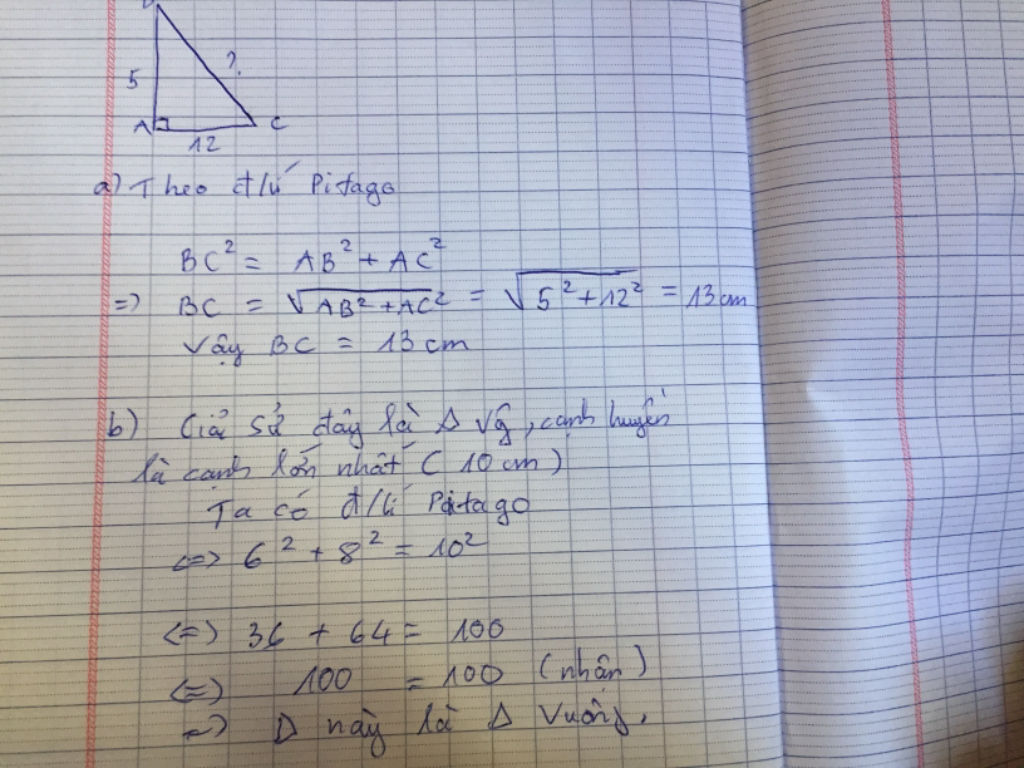 5
?
A
C
12
a) Theo đ/lí Pitago
BC² = AB² + AC²
=> BC = √AB² + AC² = √5² + 12² = 13 cm
Vậy BC = 13 cm
b) Giả sử đây là Δ vg, cạnh huyền
là cạnh lớn nhất ( 10 cm )
Ta có đ/lí Pitago
<=> 6² + 8² = 10²
<=> 36 + 64 = 100
<=> 100 = 100 (nhận)
=> Δ này là Δ vuông.